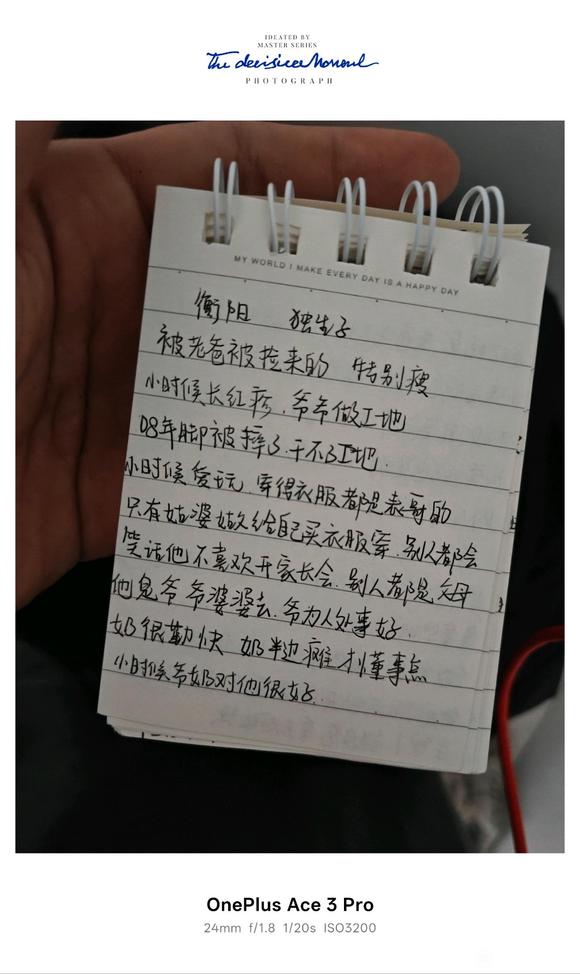 IDEATED BY
MASTER SERIES
The decisive Moment
PHOTOGRAPH
MY WORLD I MAKE EVERY DAY IS A HAPPY DAY
衡阳 独生子
被老爸被捡来的 特别瘦
小时候长红疹.爷爷做工地
08年脚被摔了.干不了工地.
小时候爱玩.穿得衣服都是表哥的
只有姑婆姑父给自己买衣服穿.别人都会
笑话他不喜欢开家长会.别人都是父母
他是爷爷婆婆去.爷为人处事好.
奶很勤快 奶半边瘫 才懂事点
小时候爷奶对他很好.
OnePlus Ace 3 Pro
24mm f/1.8 1/20s ISO3200